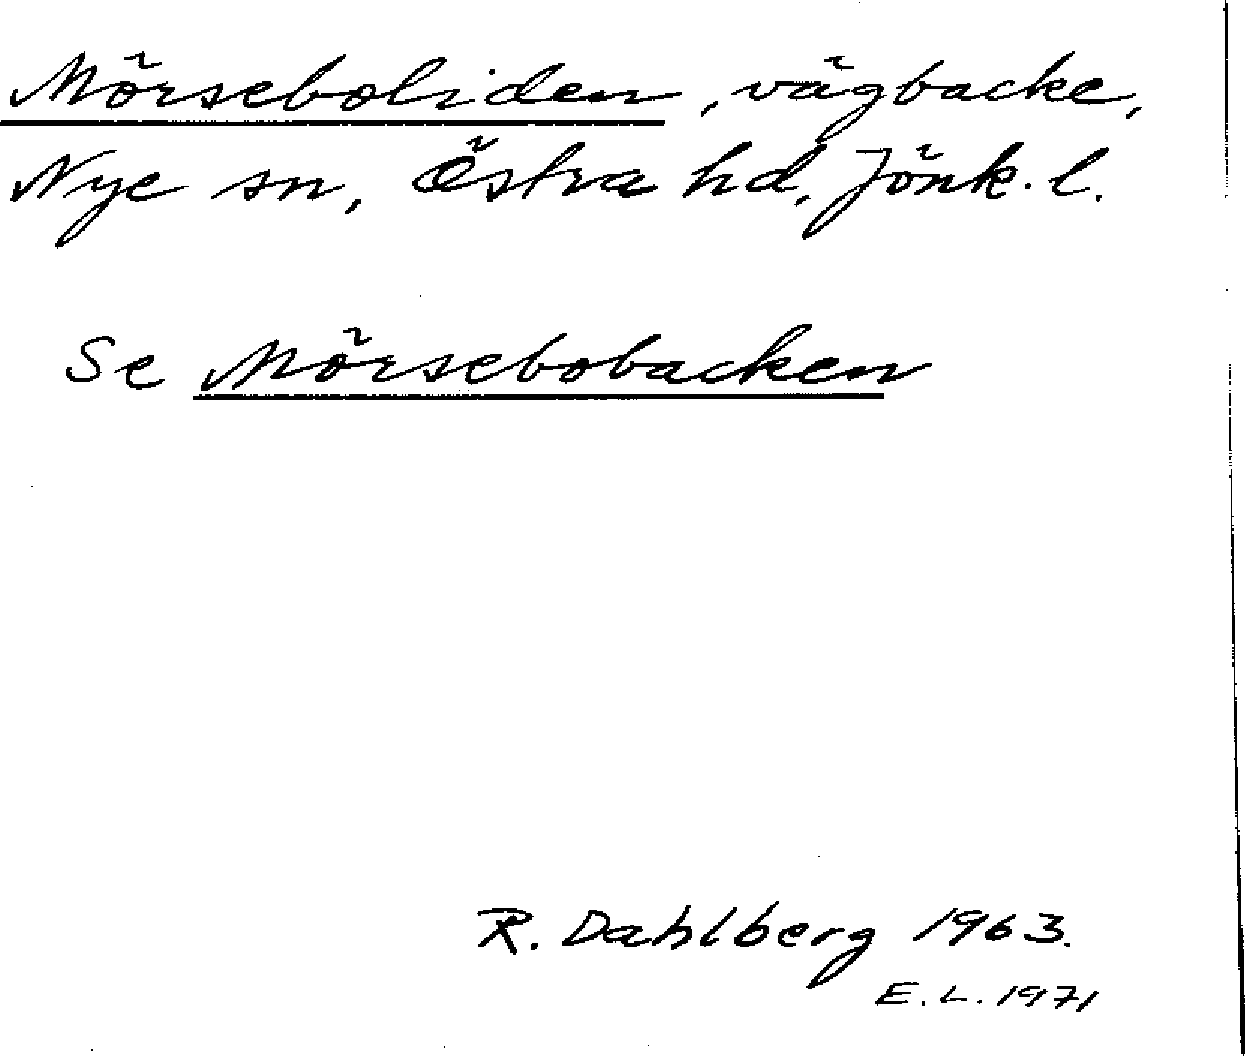 Mörseboliden, vägbacke,
Nye sn, Östra hd, Jönk. l.
Se Mörsebobacken
R. Dahlberg 1963.
E. L. 1971